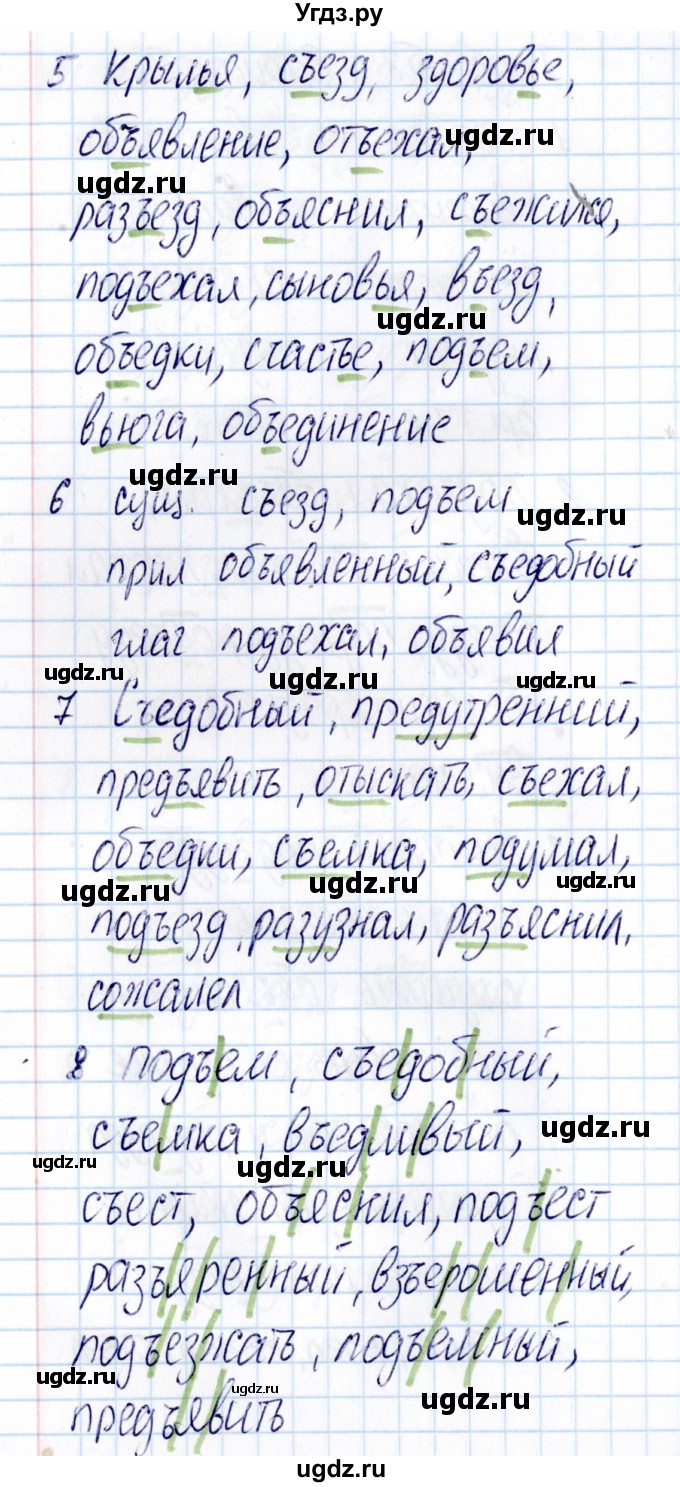 Угдз.ру
5 Крылья, съезд, здоровье,
объявление, отъехал,
ugdz.ru
ugdz.ru
разъезд, объяснил, съежился,
подъехал, сыновья, въезд,
ugdz.ru
объедки, счастье, подъем,
вьюга, объединение
ugdz.ru
6 сущ. съезд, подъем
ugdz.ru
прил объявленный, съедобный
глаг подъехал, объявил
ugdz.ru
ugdz.ru
ugdz.ru
7 Съедобный, предутренний,
предъявить, отыскать, съехал,
объедки, съемка, подумал,
ugdz.ru
ugdz.ru
ugdz.ru
подъезд, разузнал, разъяснил,
сожалел
8 подъем, съедобный,
съемка, въедливый,
ugdz.ru
ugdz.ru
ugdz.ru
съест, объяснил, подъест
разъяренный, взъерошенный,
подъезжать, подъемный,
ugdz.ru
ugdz.ru
ugdz.ru
предъявить
ugdz.ru